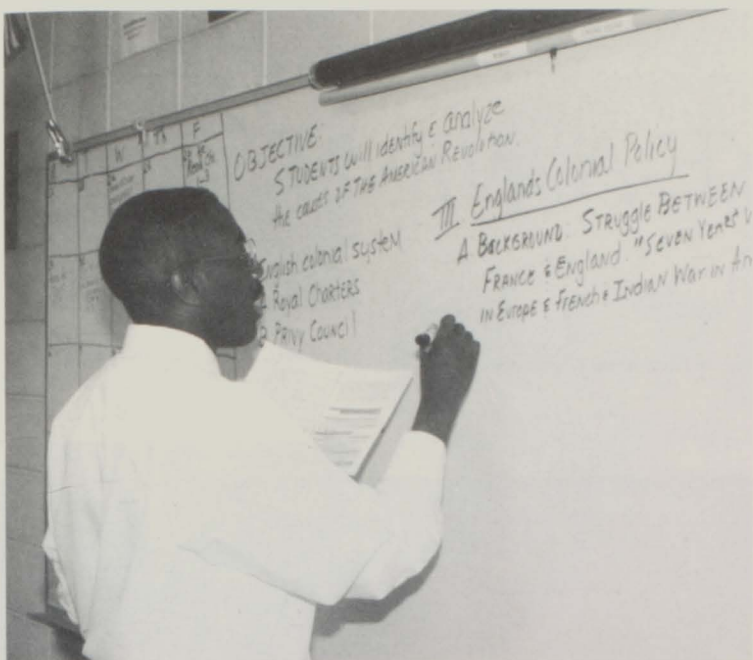 W Th F
OBJECTIVE:
STUDENTS will identify & analyze
the causes OF THE AMERICAN REVOLUTION.
English colonial system
Royal Charters
B. PRIVY COUNCIL
III Englands Colonial Policy
A. BACKGROUND: STRUGGLE BETWEEN
FRANCE & ENGLAND. "SEVEN YEARS
IN EUROPE & FRENCH & INDIAN WAR IN